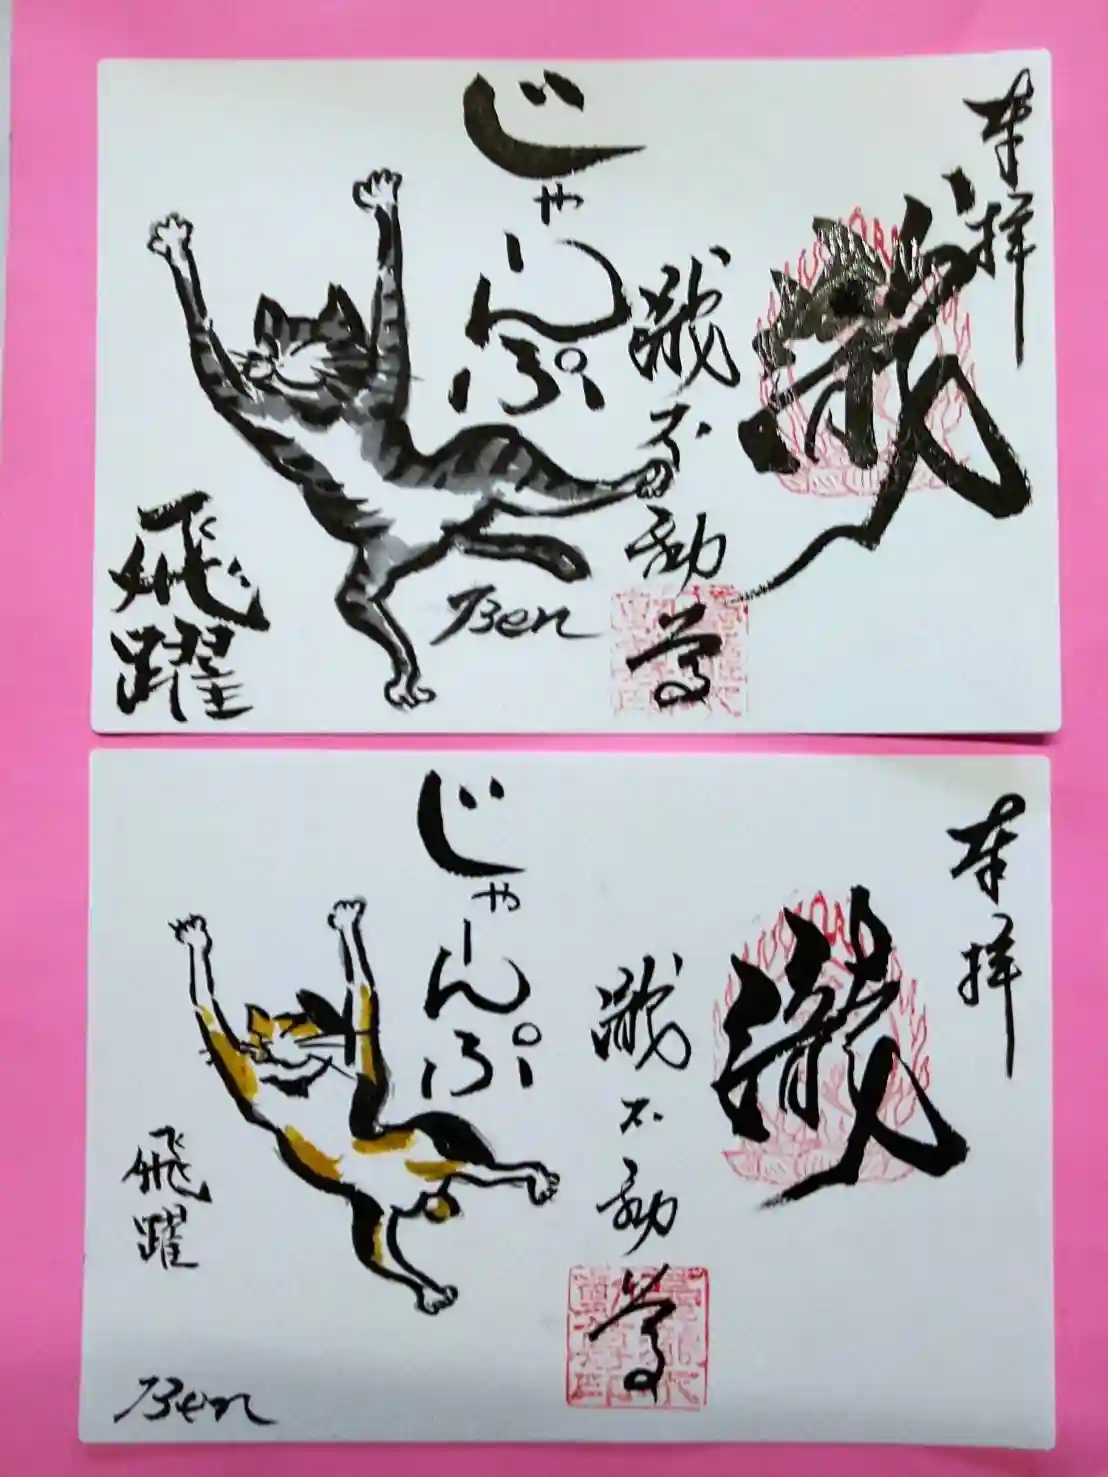 奉拝
瀧
瀧不動尊
じゃんぷ
飛躍
Ben
奉拝
瀧
瀧不動尊
じゃんぷ
飛躍
Ben